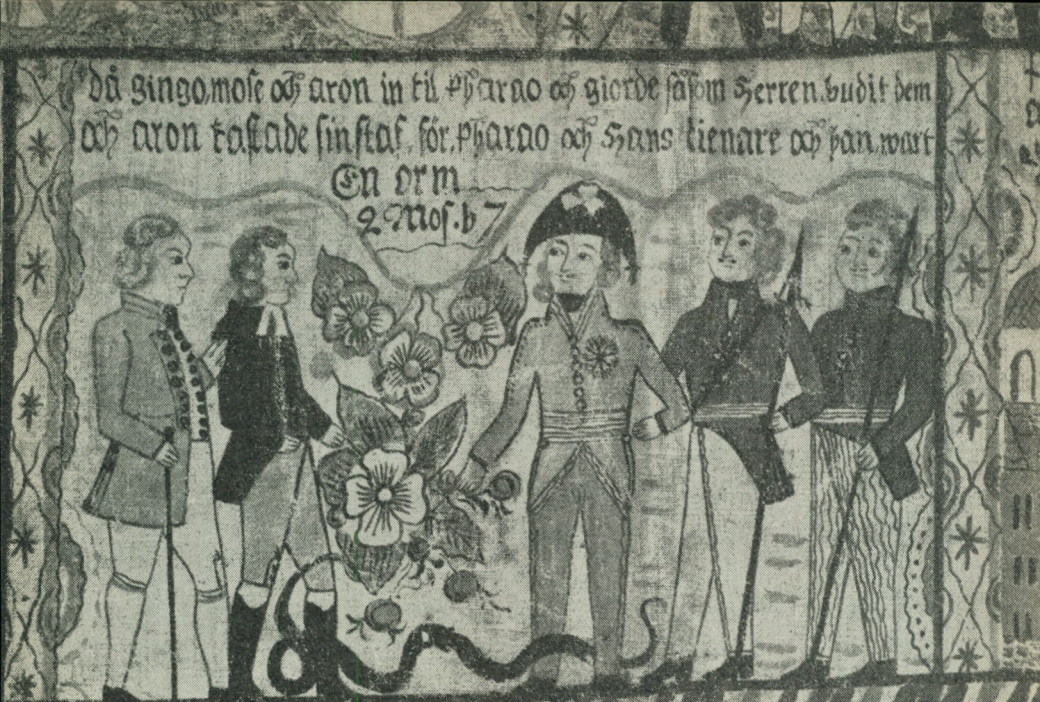 då gingo mose och aron in til Pharao och giorde såsom Herren budit dem
och aron kastade sin staf för Pharao och Hans tienare och han wart
En orm
2 Mos. b 7